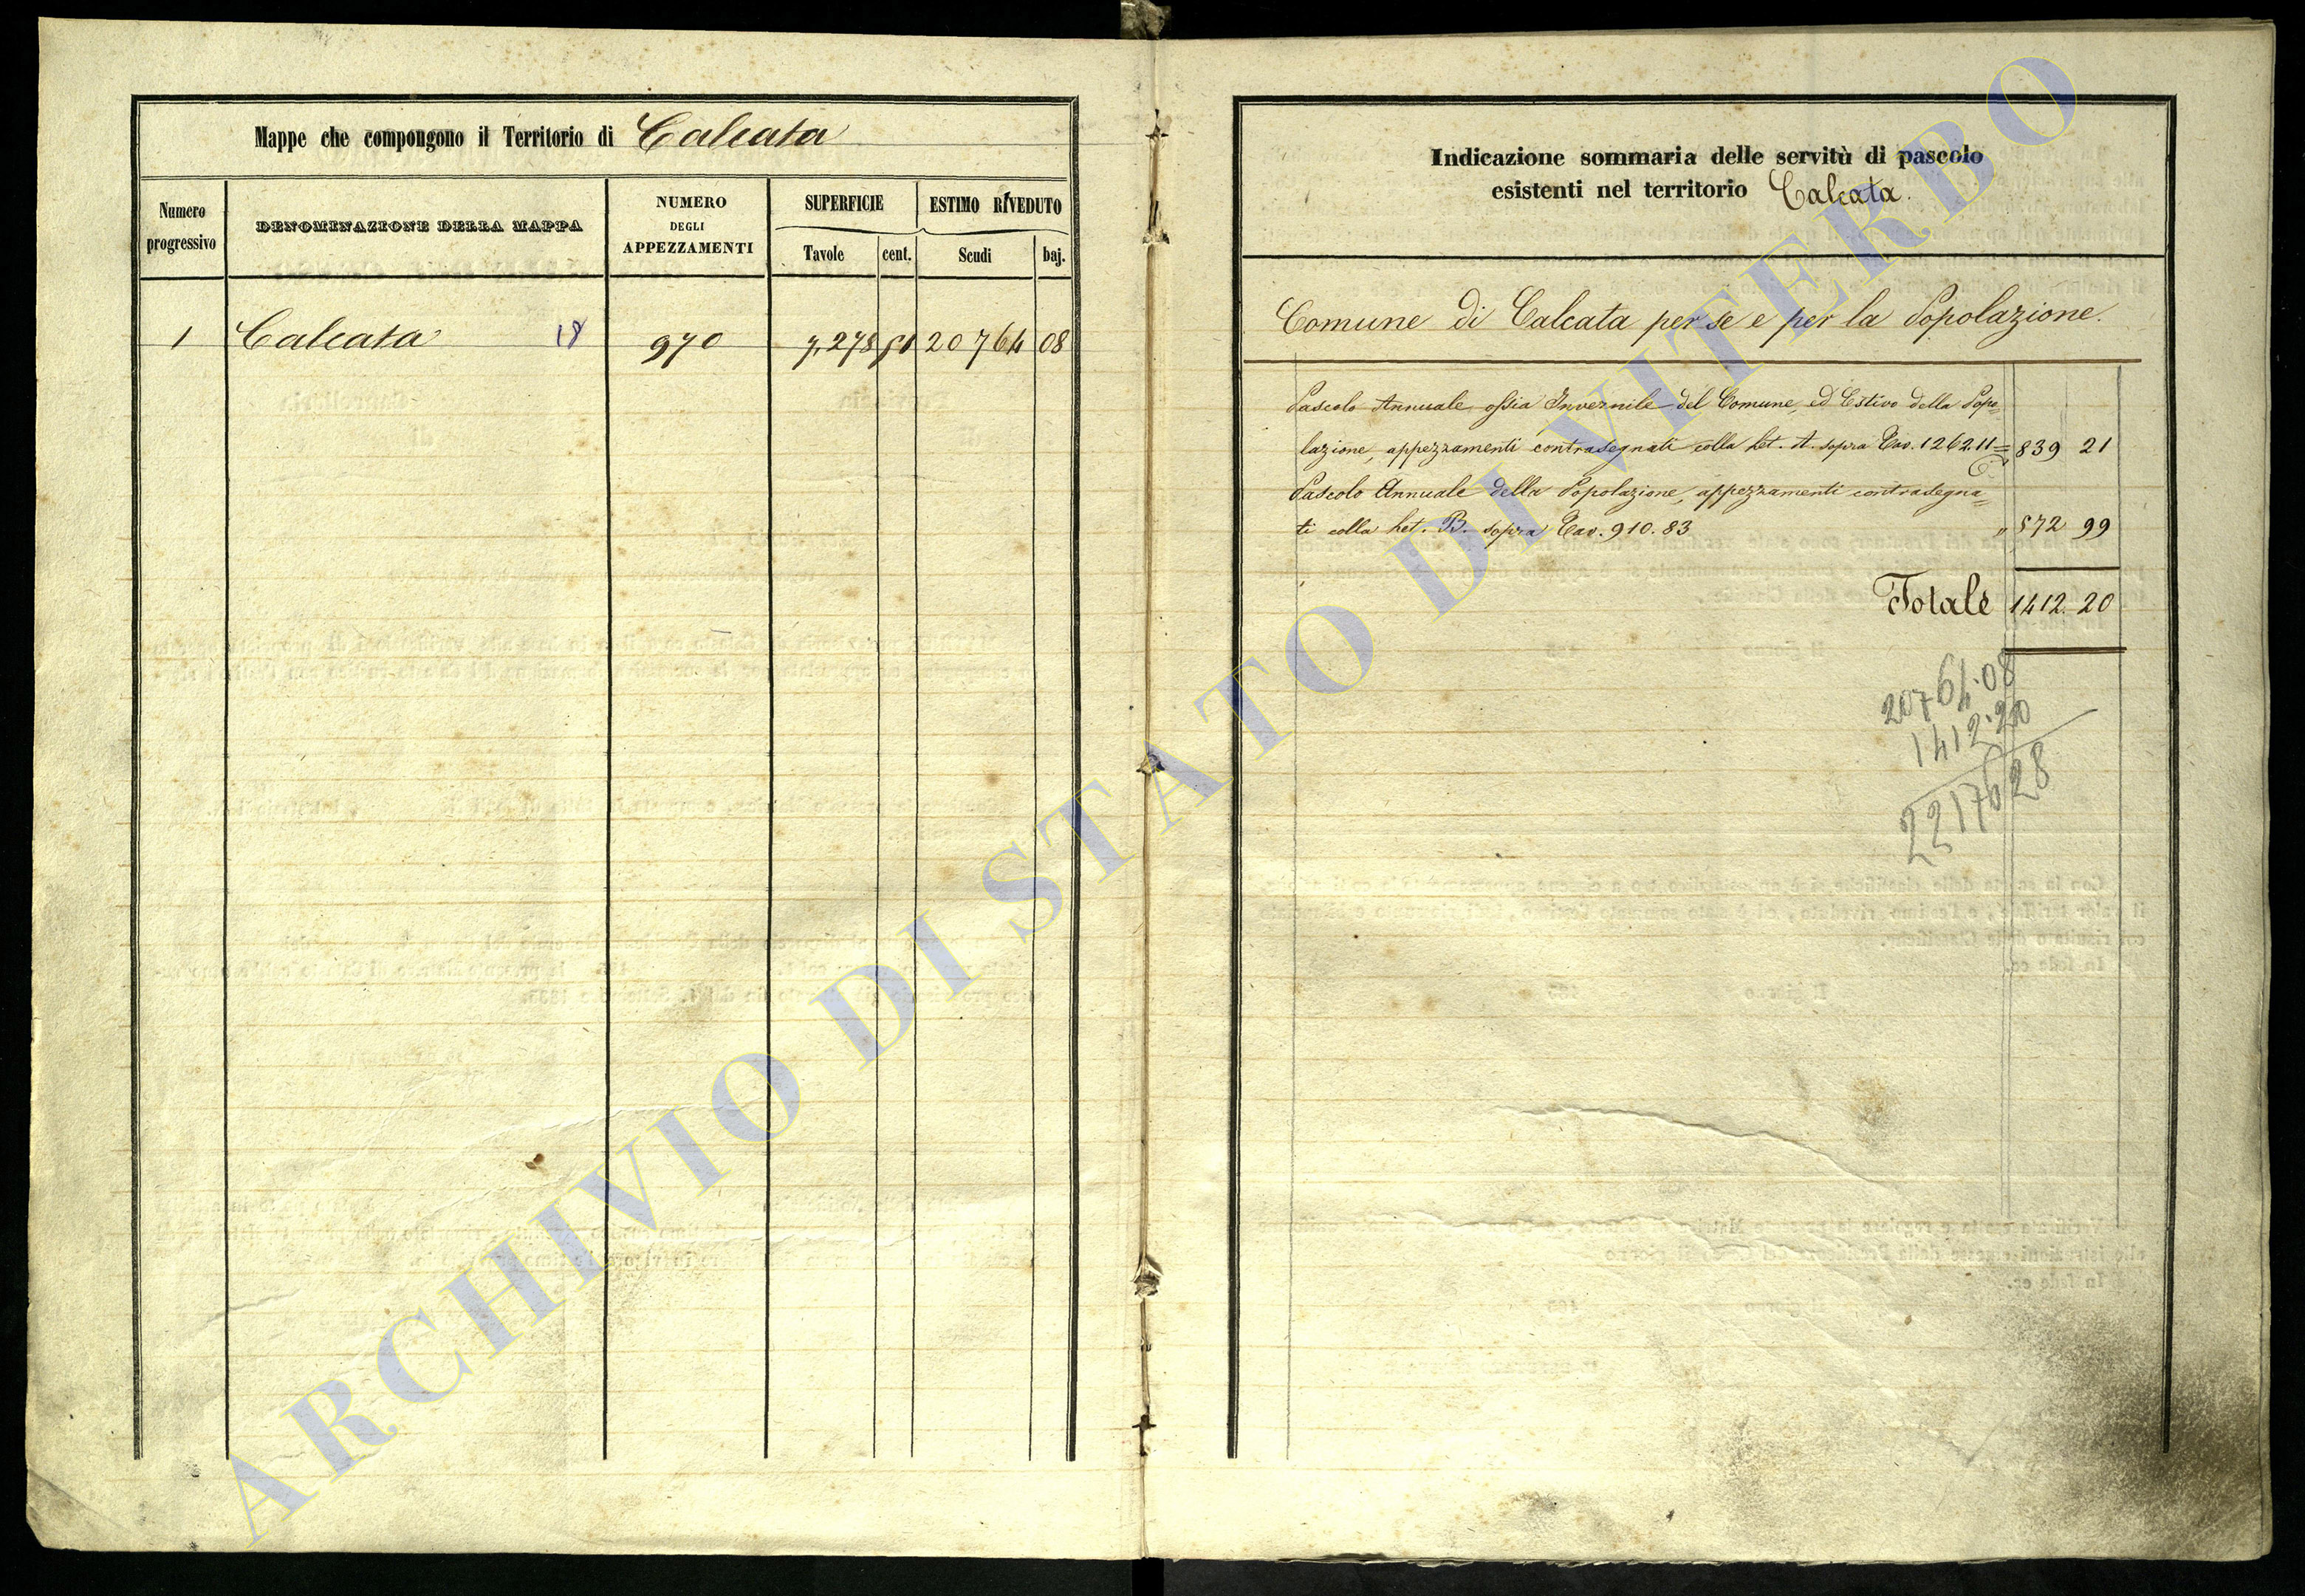 Mappe che compongono il Territorio di Calcata
Numero progressivo
DENOMINAZIONE DELLA MAPPA
NUMERO DEGLI APPEZZAMENTI
SUPERFICIE
ESTIMO RIVEDUTO
Tavole
cent.
Scudi
baj.
1 Calcata 18 970 7,278 51 20764 08
Indicazione sommaria delle servitù di pascolo
esistenti nel territorio Calcata.
Comune di Calcata per se e per la Popolazione.
Pascolo Annuale, ossia Invernile del Comune, ed Estivo della Popo=
lazione, appezzamenti contrasegnati colla Let. A. sopra Tav. 1262.11= 839 21
Pascolo Annuale della Popolazione, appezzamenti contrasegna=
ti colla Let. B. sopra Tav. 910.83 " 572 99
Totale 1412. 20
20764.08
1412.20
22176 28
ARCHIVIO DI STATO DI VITERBO